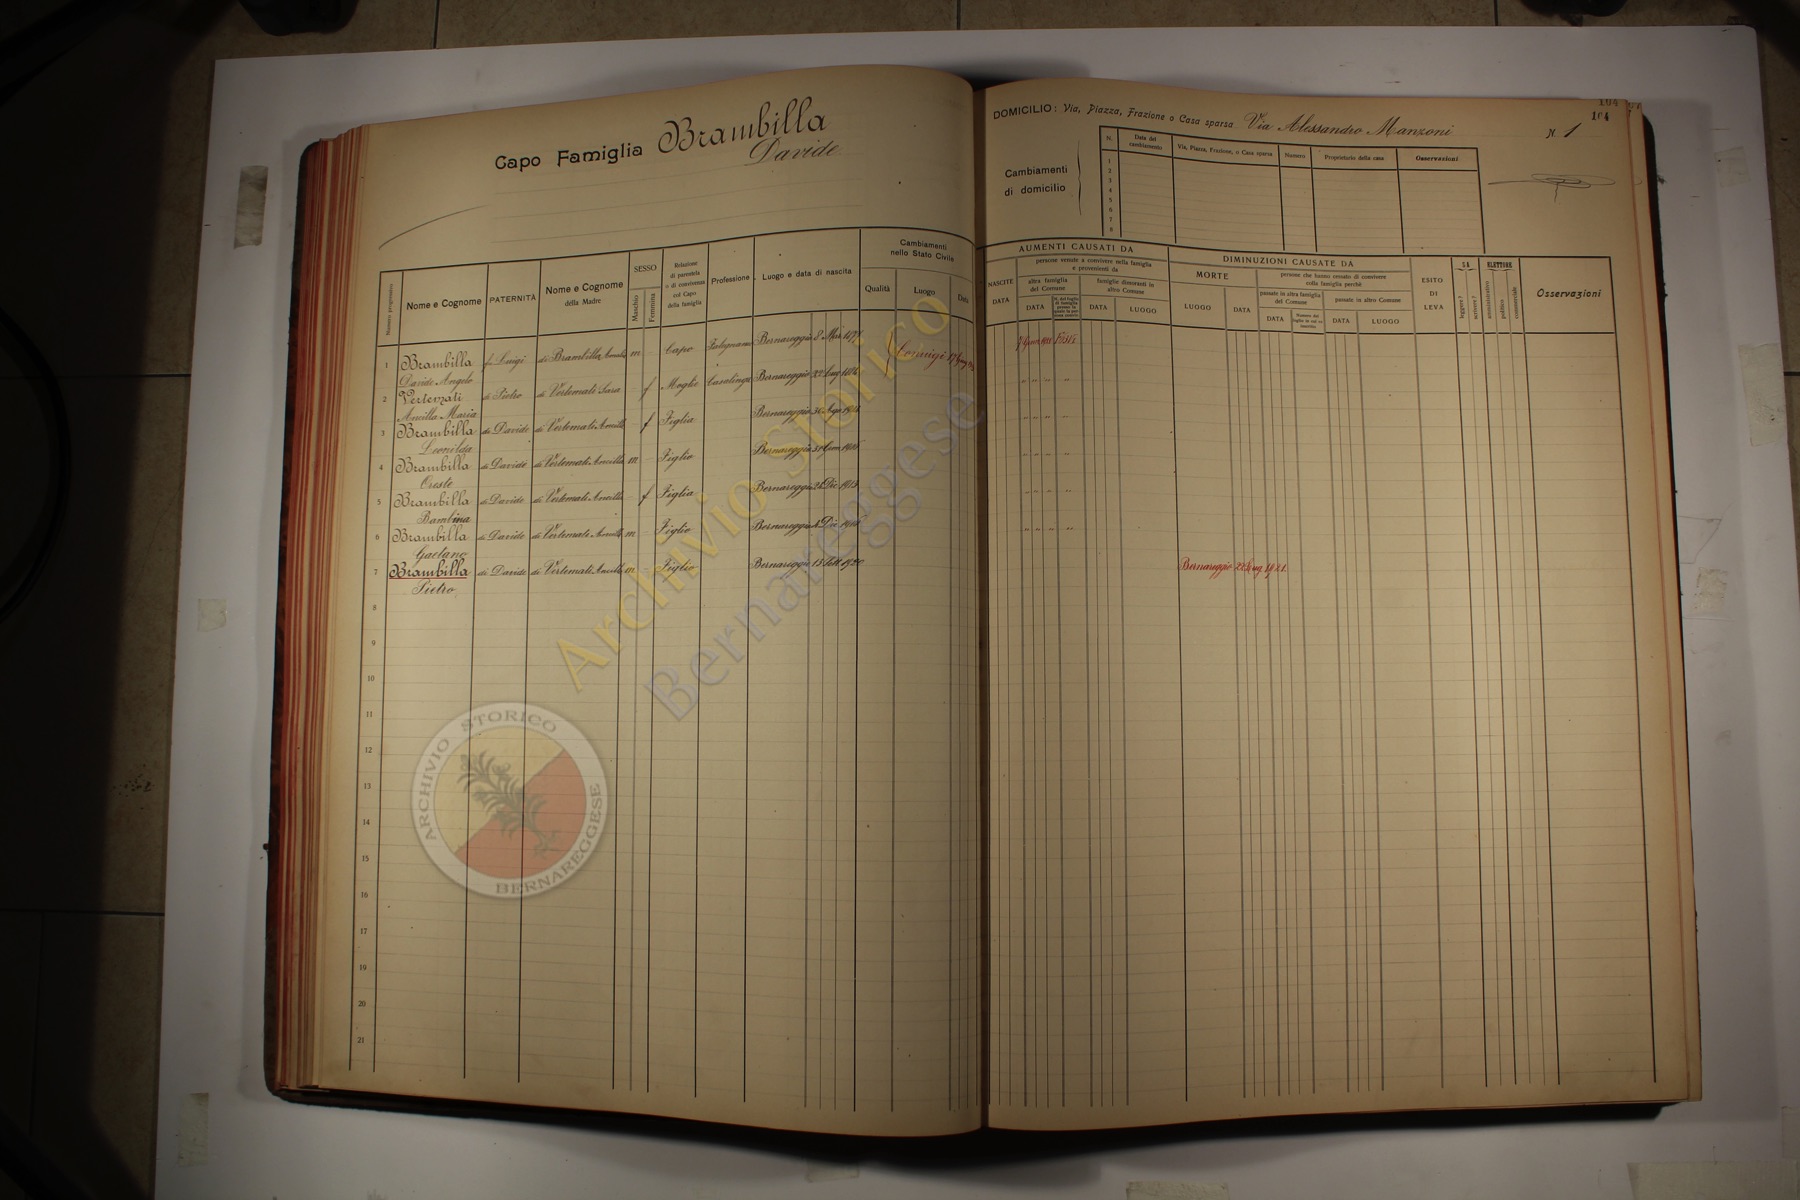 Capo Famiglia Brambilla
Davide
DOMICILIO: Via, Piazza, Frazione o Casa sparsa Via Alessandro Manzoni N. 1
104
104
Cambiamenti
di domicilio
N. Data del cambiamento Via, Piazza, Frazione, o Casa sparsa Numero Proprietario della casa Osservazioni
1
2
3
4
5
6
7
8
Numero progressivo
Nome e Cognome
PATERNITÀ
Nome e Cognome
della Madre
SESSO
Maschio
Femmina
Relazione
di parentela
o di convivenza
col Capo
della famiglia
Professione
Luogo e data di nascita
Cambiamenti
nello Stato Civile
Qualità Luogo Data
AUMENTI CAUSATI DA
NASCITE
DATA
persone venute a convivere nella famiglia
e provenienti da
altra famiglia
del Comune
DATA
famiglie dimoranti in
altro Comune
DATA LUOGO
DIMINUZIONI CAUSATE DA
MORTE
LUOGO DATA
persone che hanno cessato di convivere
colla famiglia perchè
passate in altra famiglia
del Comune
DATA
passate in altro Comune
DATA LUOGO
ESITO
DI
LEVA
SA
leggere?
scrivere?
ELETTORE
amministrativo
politico
commerciale
Osservazioni
1 Brambilla f Luigi di Brambilla m Capo Bernareggio 8
Davide Angelo
2 Vertemati di Pietro di Vertemati Sara f Moglie Casalinga Bernareggio 22
Ancilla Maria
3 Brambilla di Davide di Vertemati Ancilla f Figlia Bernareggio
Leonilda
4 Brambilla di Davide di Vertemati Ancilla m Figlio Bernareggio
Oreste
5 Brambilla di Davide di Vertemati Ancilla f Figlia Bernareggio 28 Dic
Bambina
6 Brambilla di Davide di Vertemati Ancilla m Figlio Bernareggio Dic
Gaetano
7 Brambilla di Davide di Vertemati Ancilla m Figlio Bernareggio 13 Sett 1920 Bernareggio 1921
Pietro
8
9
10
11
12
13
14
15
16
17
18
19
20
21
Archivio Storico
Bernareggese
ARCHIVIO STORICO
BERNAREGGESE